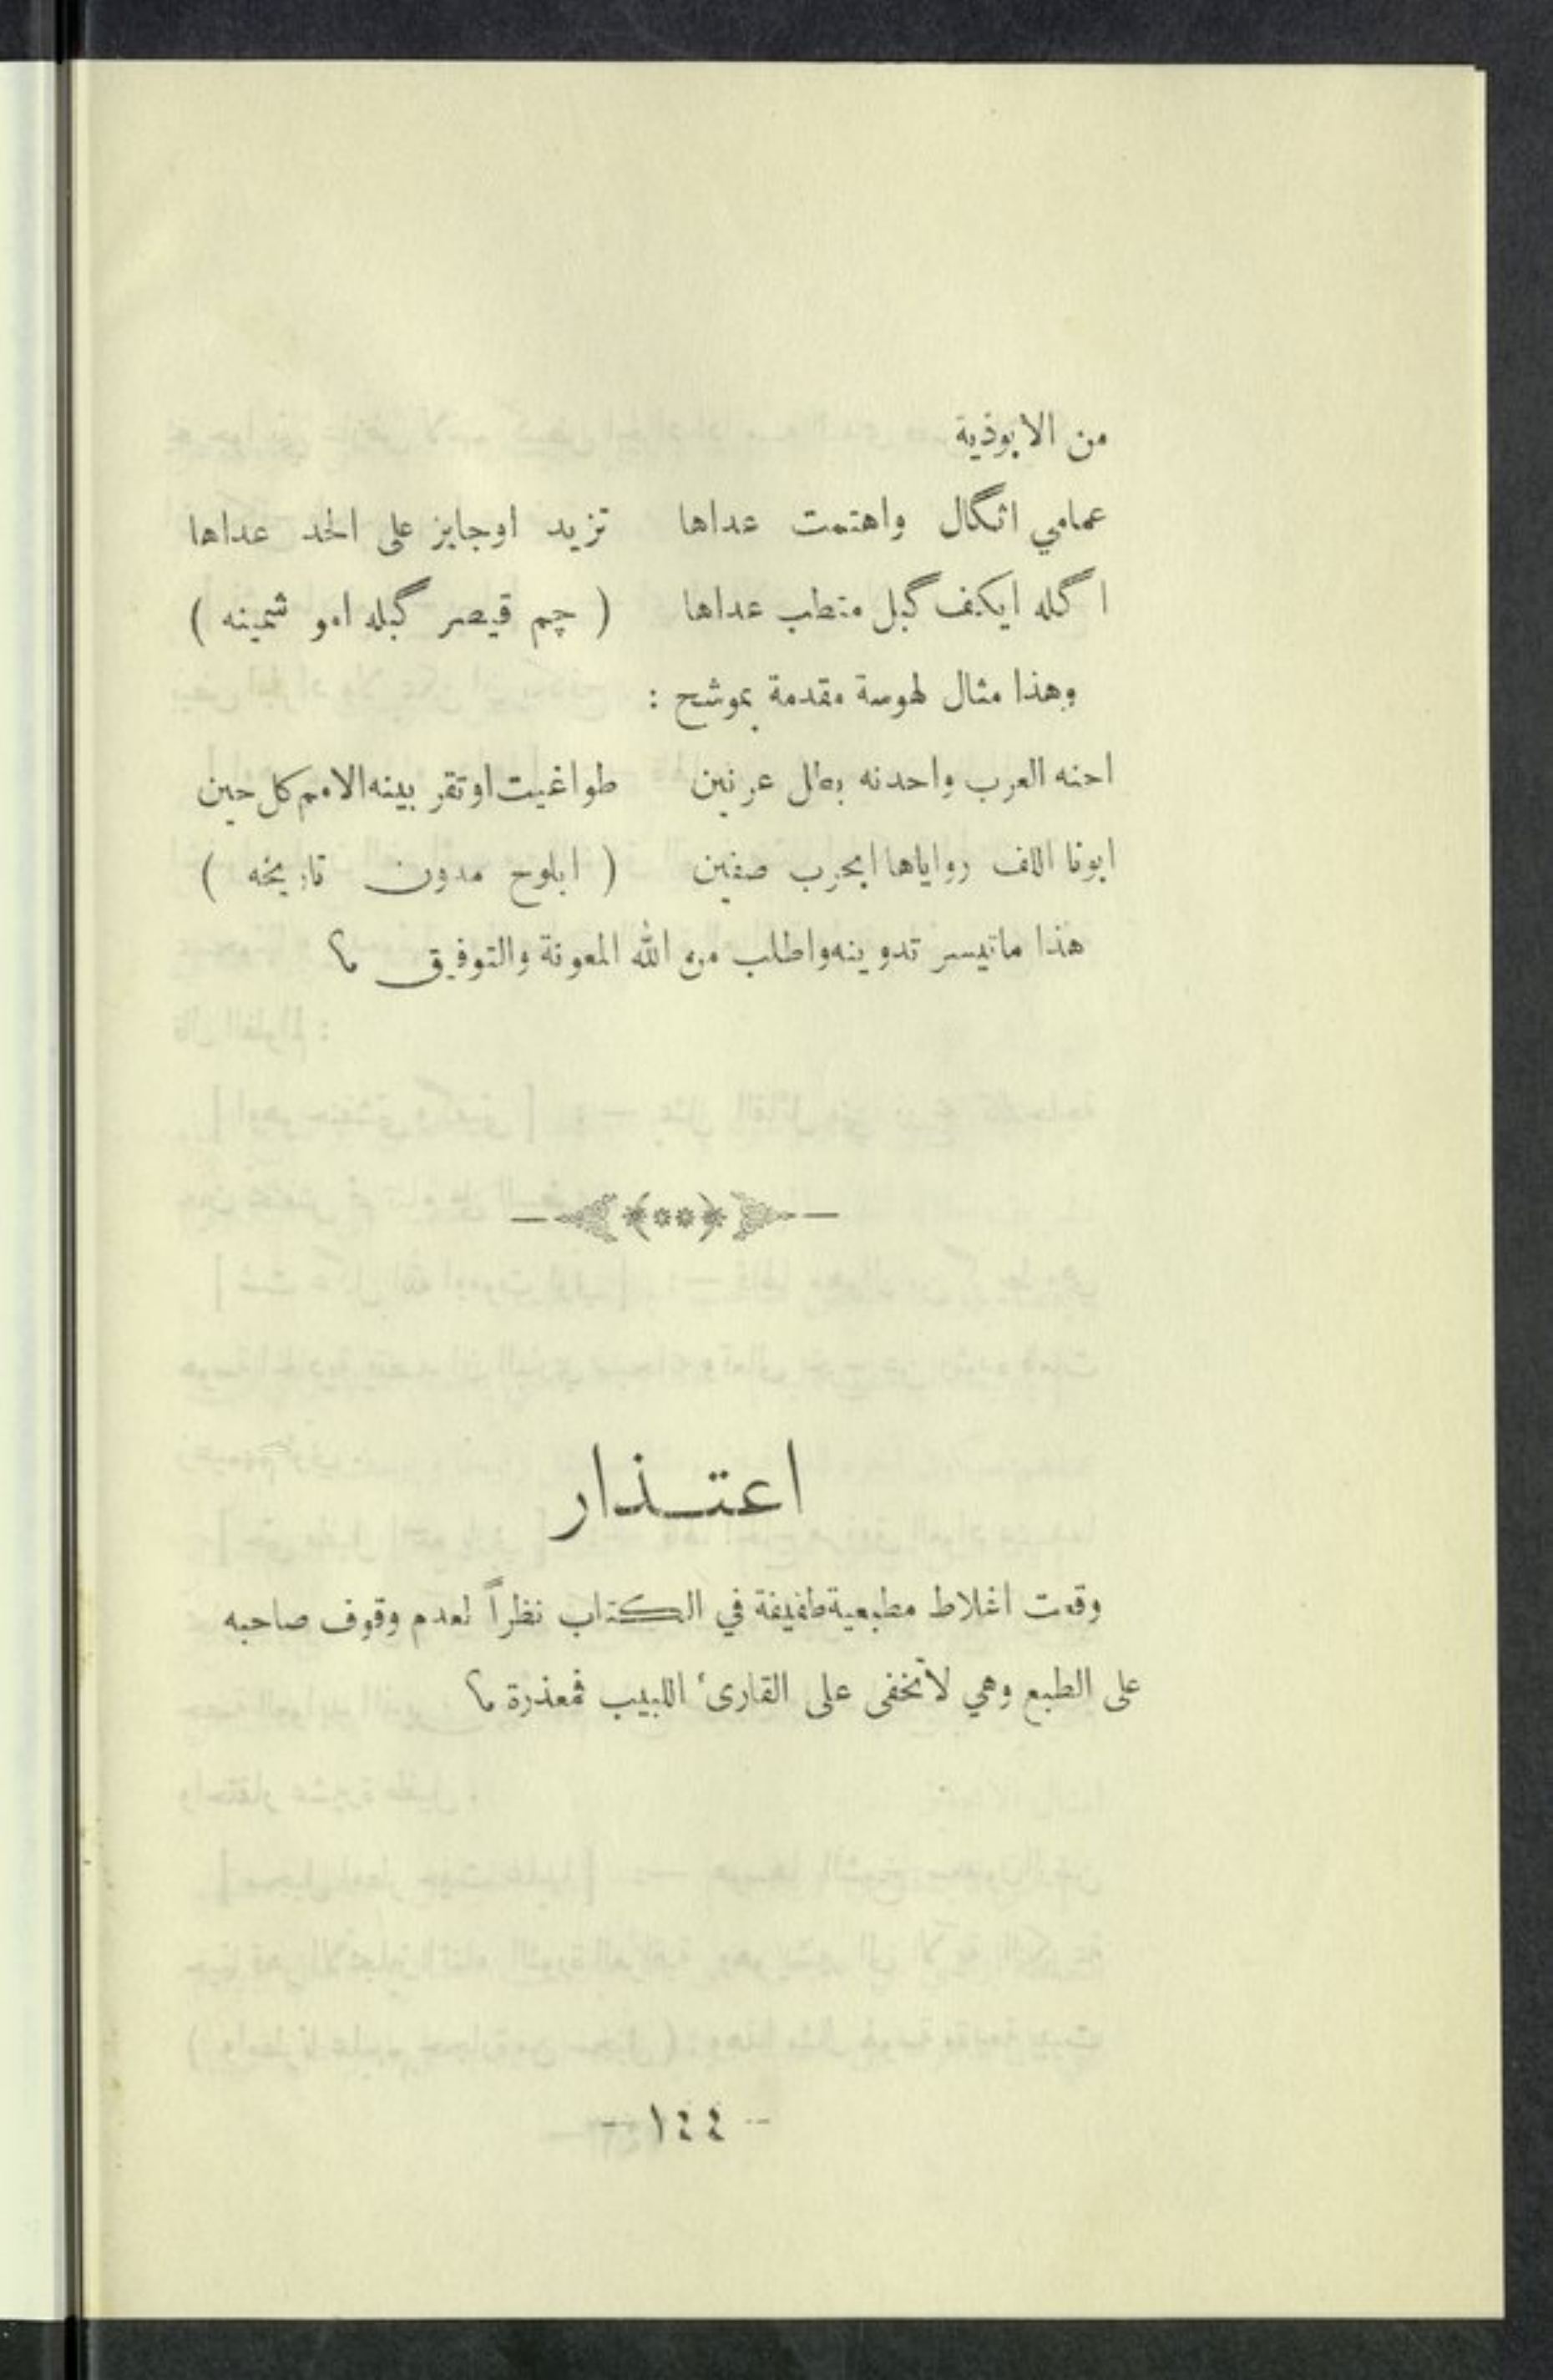 من الابوذية
عمامي اثگال واهتمت عداها تزيد اوجايز على الحد عداها
اگله ايكف گبل متطب عداها ( چم قيصر گبله امو شمينه )
وهذا مثال لهوسة مقدمة بموشح :
احنه العرب واحدنه بطل عرنين طواغيت اوتقر بينه الامم كل حين
ابونا اللف رواياها ابحرب صفين ( ابلوح مدون تاريخه )
هذا ماتيسر تدوينه واطلب من الله المعونة والتوفيق
اعتـذار
وقعت اغلاط مطبعية طفيفة في الكتاب نظراً لعدم وقوف صاحبه
على الطبع وهي لاتخفى على القارئ اللبيب فمعذرة
- ١٤٤ -